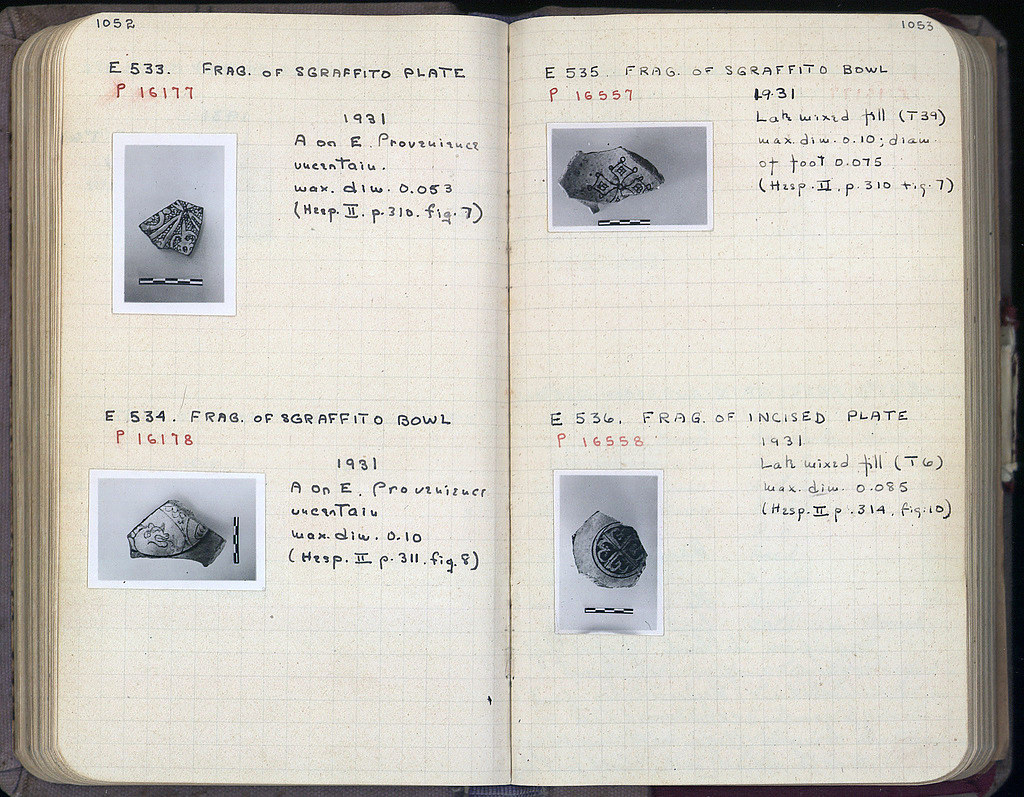 1052
E 533. FRAG. OF SGRAFFITO PLATE
P 16177
1931
A on E. Provenience
uncertain.
max. dim. 0.053
(Hesp. II. p. 310. fig. 7)
E 534. FRAG. OF SGRAFFITO BOWL
P 16178
1931
A on E. Provenience
uncertain
max. dim. 0.10
(Hesp. II p. 311. fig. 8)
1053
E 535. FRAG. OF SGRAFFITO BOWL
P 16557
1931
Late mixed fill (T39)
max. dim. 0.10; diam.
of foot 0.075
(Hesp. II. p. 310 fig. 7)
E 536. FRAG. OF INCISED PLATE
P 16558
1931
Late mixed fill (T6)
max. dim. 0.085
(Hesp. II p. 314, fig. 10)